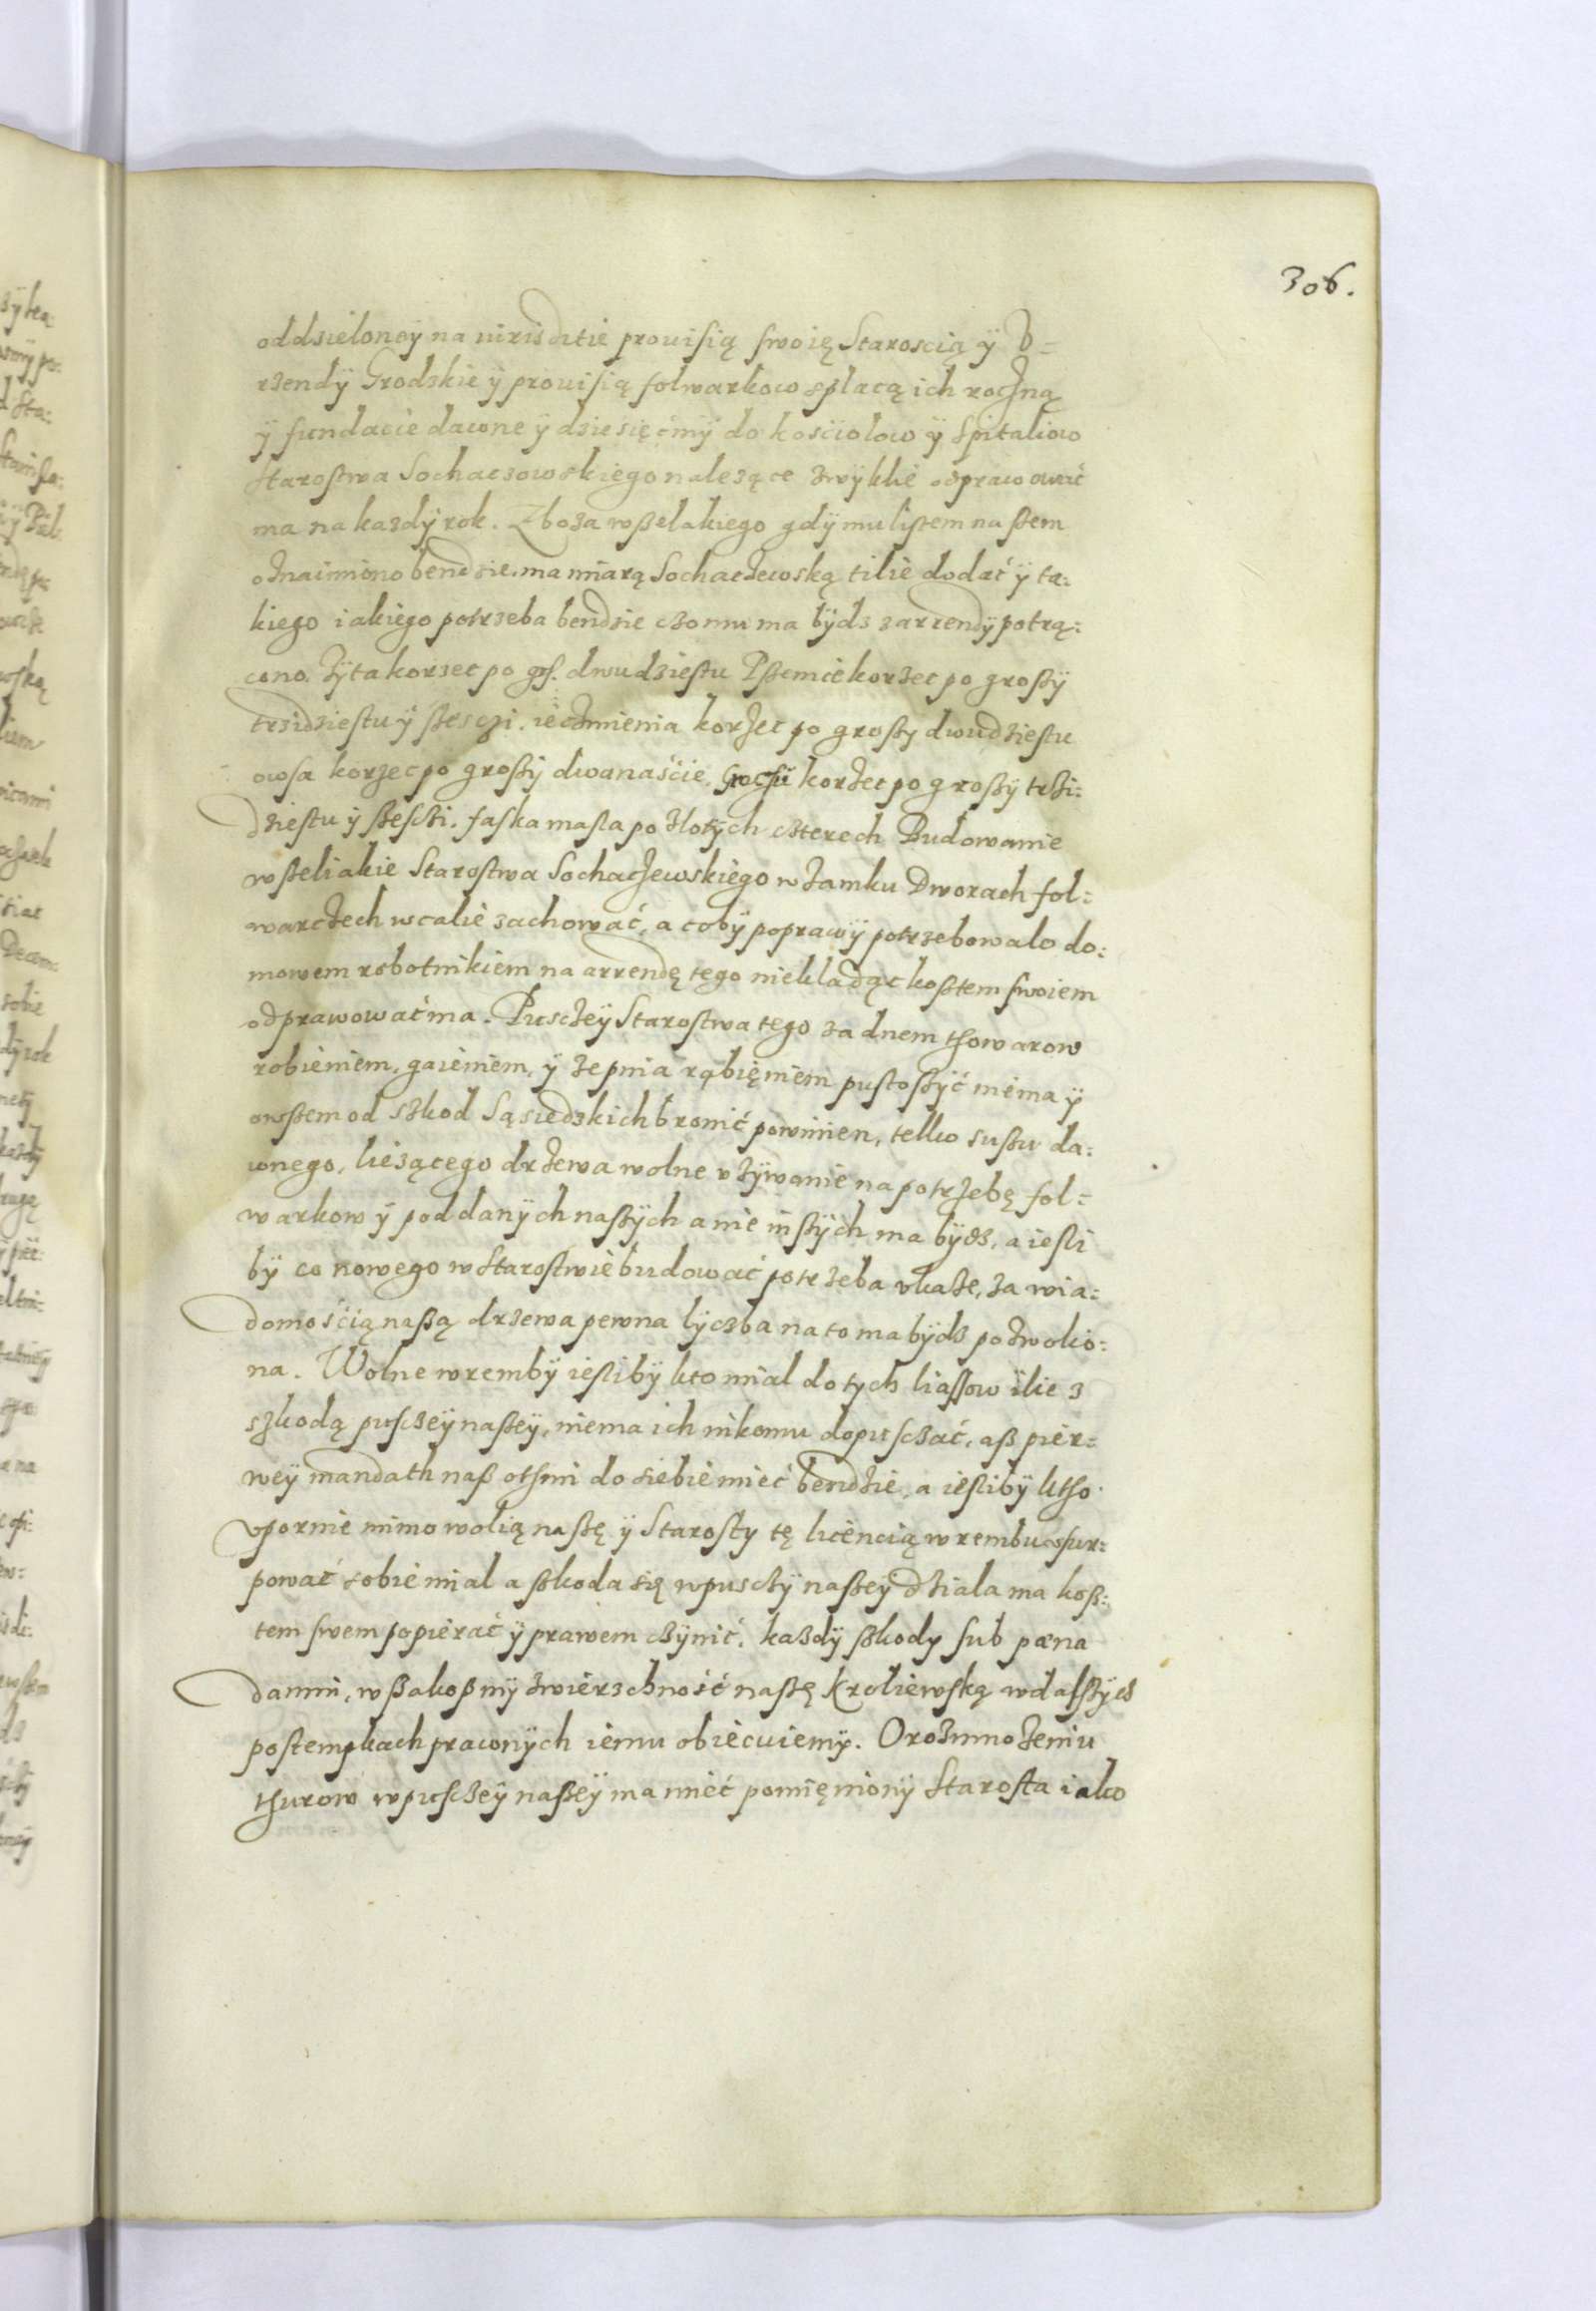 306.
oddzieloney na iurisditie prouisią swoię Staroscią ÿ V=
rzendÿ Grodzkie ÿ prouisią folwarkow zplacą ich roczną
ÿ fundacie dawne ÿ dziesięcinÿ do kosciolow ÿ Spitaliow
Starostwa Sochaczowskiego nalezące zwÿklie odprawowac
ma na kazdÿ rok. Zboza wßelakiego gdÿ mu listem naßem
oznaimiono bendzie, ma miarą Sochaczewską tilie dodać ÿ ta=
kiego iakiego potrzeba bendzie czo mu ma bÿdz z arrendÿ potrą=
cono. Zÿta korzec po grß. dwudziestu Pßenicie korzec po großÿ
trzidziestu ÿ ßesczi. ieczmienia korzec po großy dwudziestu
owsa korzec po großÿ dwanaście, Grochu korzec po großÿ trzi=
dziestu ÿ ßesczi. faska masla po zlotÿch czterech Budowanie
wßeliakie Starostwa Sochaczewskiego w zamku Dworach fol=
warczech wcalie zachować, a cobÿ poprawÿ potrzebowalo do=
mowem robotnikiem na arrendę tego niekladąc koßtem swoiem
odprawować ma. Pusczeÿ Starostwa tego zadnem thowarow
robieniem, gaieniem, ÿ zepnia rąbięniem pustoßÿć niema ÿ
owßem od szkod Sąsiedzkich bronić powinien, telko sußu da=
wnego, liezącego drzewa wolne vzÿwanie na potrzebę fol=
warkow ÿ poddanÿch naßÿch a nie inßÿch ma bÿdz, a iesli
bÿ co nowego w Starostwie budować potrzeba vkaze, za wia=
domością naßą drzewa pewna lÿczba na to ma bÿdz pozwolio=
na. Wolne wrembÿ iesli bÿ kto mial do tych liassow ÿlie z
szkodą pusczeÿ naßeÿ, niema ich nikomu dopusczać, aß pier=
weÿ mandath naß othim do siebie mieć bendzie, a iesli bÿ ktho
vpornie mimo wolią naßę ÿ Starosty tę licencią wrembu vsur=
pować sobie mial a ßkoda się w pusczÿ naßeÿ dziala ma koß=
tem swem popierać ÿ prawem czÿnić, kazdÿ ßkody sub pœna
damni, wßakoß mÿ zwierzchność naßę Kroliewską w dalßÿch
postempkach prawnÿch iemu obiecuiemÿ. O rozmnozeniu
thurow w pusczeÿ naßeÿ ma mieć pomięnionÿ Starosta iako